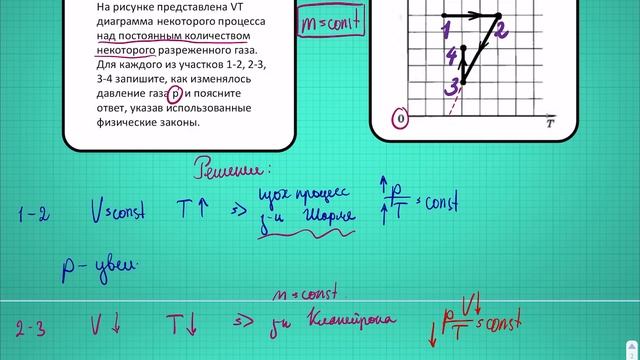 На рисунке представлена VT
диаграмма некоторого процесса
над постоянным количеством
некоторого разреженного газа.
Для каждого из участков 1-2, 2-3,
3-4 запишите, как изменялось
давление газа p и поясните
ответ, указав использованные
физические законы.
m=const
1 2
4
3
0 T
Решение:
1-2 V=const T↑ => изох процесс
з-н Шарля
↑p/↑T = const
p - увел.
m=const
2-3 V↓ T↓ => з-н Клапейрона ↓pV↓/T = const
2